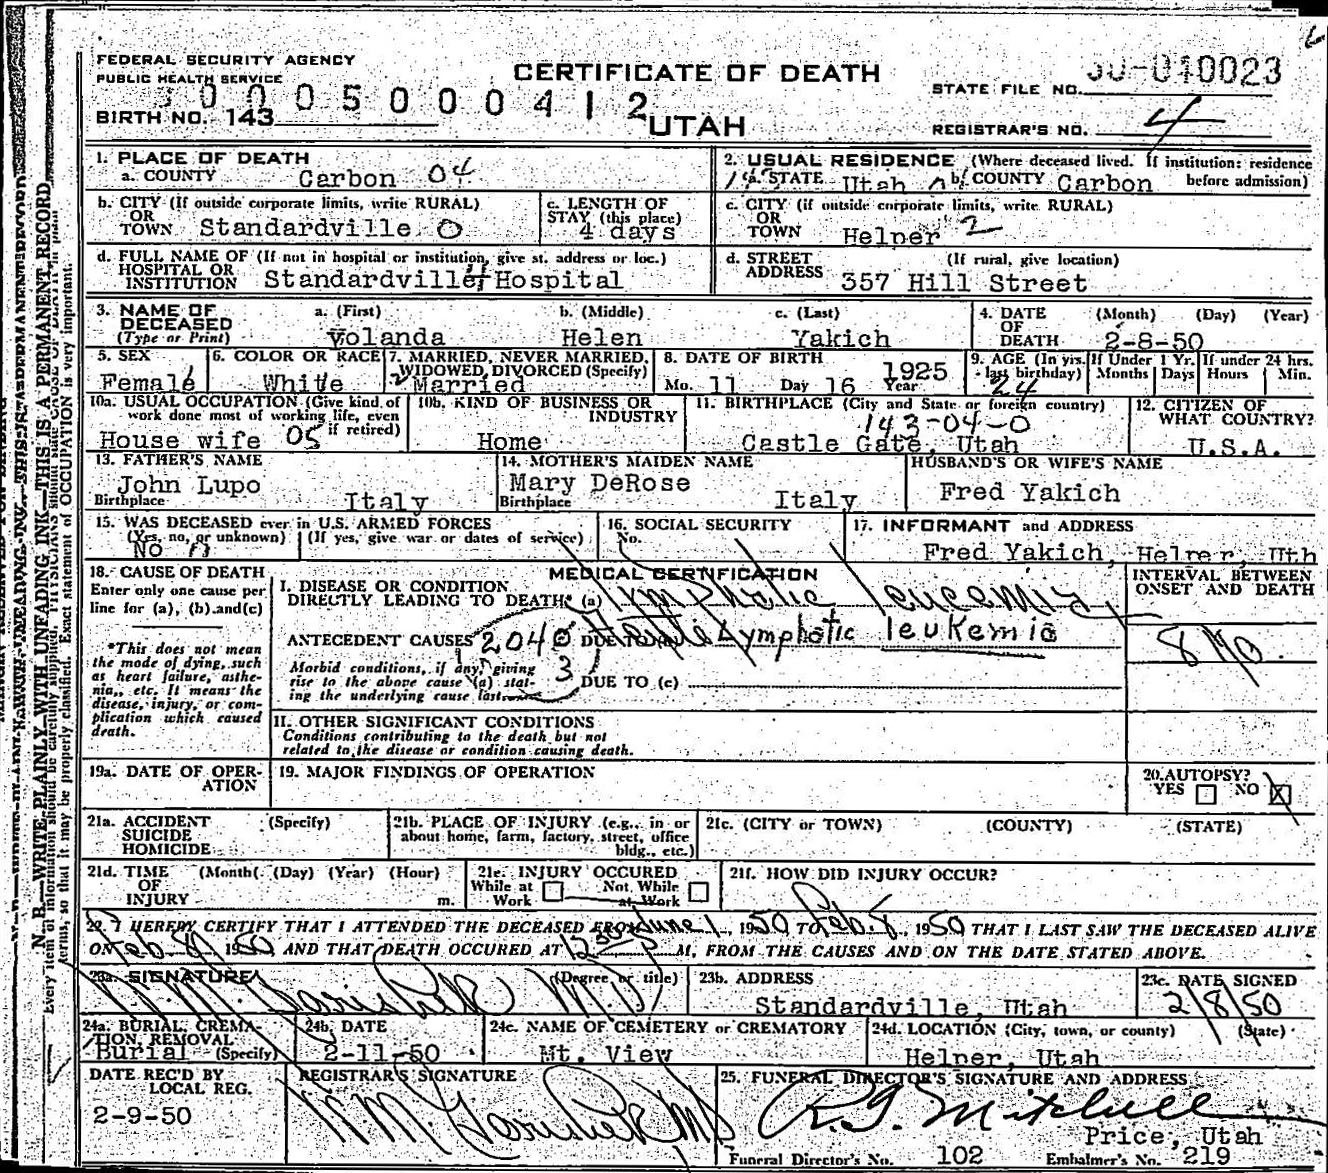 FEDERAL SECURITY AGENCY
PUBLIC HEALTH SERVICE
CERTIFICATE OF DEATH
STATE FILE NO. 50-040023
0005000412
BIRTH NO. 143
UTAH
REGISTRAR'S NO. 4
1. PLACE OF DEATH
a. COUNTY Carbon 04
2. USUAL RESIDENCE (Where deceased lived. If institution: residence before admission)
a. STATE Utah b. COUNTY Carbon
b. CITY (If outside corporate limits, write RURAL)
OR
TOWN Standardville 0
c. LENGTH OF
STAY (this place)
4 days
c. CITY (if outside corporate limits, write RURAL)
OR
TOWN Helper 2
d. FULL NAME OF (If not in hospital or institution, give st. address or loc.)
HOSPITAL OR
INSTITUTION Standardville Hospital
d. STREET (If rural, give location)
ADDRESS 357 Hill Street
3. NAME OF DECEASED (Type or Print)
a. (First) Yolanda
b. (Middle) Helen
c. (Last) Yakich
4. DATE OF DEATH (Month) (Day) (Year)
2-8-50
5. SEX
Female
6. COLOR OR RACE
White
7. MARRIED, NEVER MARRIED, WIDOWED, DIVORCED (Specify)
Married
8. DATE OF BIRTH
Mo. 11 Day 16 Year 1925
9. AGE (In yrs. last birthday)
24
If Under 1 Yr. Months Days
If under 24 hrs. Hours Min.
10a. USUAL OCCUPATION (Give kind of work done most of working life, even if retired)
House wife 05
10b. KIND OF BUSINESS OR INDUSTRY
Home
11. BIRTHPLACE (City and State or foreign country)
143-04-0
Castle Gate, Utah
12. CITIZEN OF WHAT COUNTRY?
U.S.A.
13. FATHER'S NAME
John Lupo
Birthplace Italy
14. MOTHER'S MAIDEN NAME
Mary DeRose
Birthplace Italy
HUSBAND'S OR WIFE'S NAME
Fred Yakich
15. WAS DECEASED ever in U.S. ARMED FORCES
(Yes, no, or unknown) (If yes, give war or dates of service)
No
16. SOCIAL SECURITY
No.
17. INFORMANT and ADDRESS
Fred Yakich, Helper, Uth
18. CAUSE OF DEATH
Enter only one cause per line for (a), (b) and (c)
*This does not mean the mode of dying, such as heart failure, asthenia, etc. It means the disease, injury, or complication which caused death.
MEDICAL CERTIFICATION
I. DISEASE OR CONDITION
DIRECTLY LEADING TO DEATH* (a) Lymphatic leucemia
ANTECEDENT CAUSES 2040 DUE TO Lymphatic leukemia
Morbid conditions, if any, giving rise to the above cause (a) stating the underlying cause last.
3
DUE TO (c)
INTERVAL BETWEEN ONSET AND DEATH
8 Mo.
II. OTHER SIGNIFICANT CONDITIONS
Conditions contributing to the death but not related to the disease or condition causing death.
19a. DATE OF OPERATION
19. MAJOR FINDINGS OF OPERATION
20. AUTOPSY?
YES NO X
21a. ACCIDENT (Specify)
SUICIDE
HOMICIDE
21b. PLACE OF INJURY (e.g., in or about home, farm, factory, street, office bldg., etc.)
21c. (CITY or TOWN) (COUNTY) (STATE)
21d. TIME OF INJURY (Month) (Day) (Year) (Hour) m.
21e. INJURY OCCURED
While at Work Not While at Work
21f. HOW DID INJURY OCCUR?
I HEREBY CERTIFY THAT I ATTENDED THE DECEASED FROM June 1, 1950 TO Feb. 8, 1950 THAT I LAST SAW THE DECEASED ALIVE
ON Feb 1950 AND THAT DEATH OCCURED AT M, FROM THE CAUSES AND ON THE DATE STATED ABOVE.
23a. SIGNATURE (Degree or title)
M.D.
23b. ADDRESS
Standardville, Utah
23c. DATE SIGNED
2/8/50
24a. BURIAL, CREMATION, REMOVAL (Specify)
Burial
24b. DATE
2-11-50
24c. NAME OF CEMETERY or CREMATORY
Mt. View
24d. LOCATION (City, town, or county) (State)
Helper, Utah
DATE REC'D BY LOCAL REG.
2-9-50
REGISTRAR'S SIGNATURE
25. FUNERAL DIRECTOR'S SIGNATURE AND ADDRESS
Mitchell
Price, Utah
Funeral Director's No. 102 Embalmer's No. 219
N. B.—WRITE PLAINLY WITH UNFADING INK—THIS IS A PERMANENT RECORD